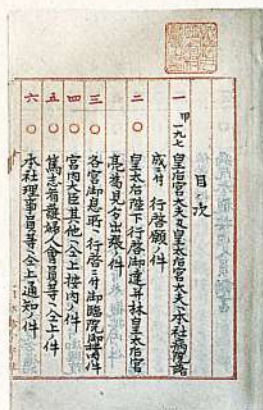 目次
一
甲一九七
皇后宮大夫皇太后宮大夫ヘ本社病院落
成ニ付行啓願ノ件
二
皇太后陛下行啓御達并林皇太后宮
亮為見分出張ノ件
三
各宮御息所ヘ行啓ニ付御臨院御案内ノ件
四
宮内大臣其他ヘ仝上按内ノ件
五
篤志看護婦人會員等ヘ仝上ノ件
六
本社理事員等ヘ仝上通知ノ件